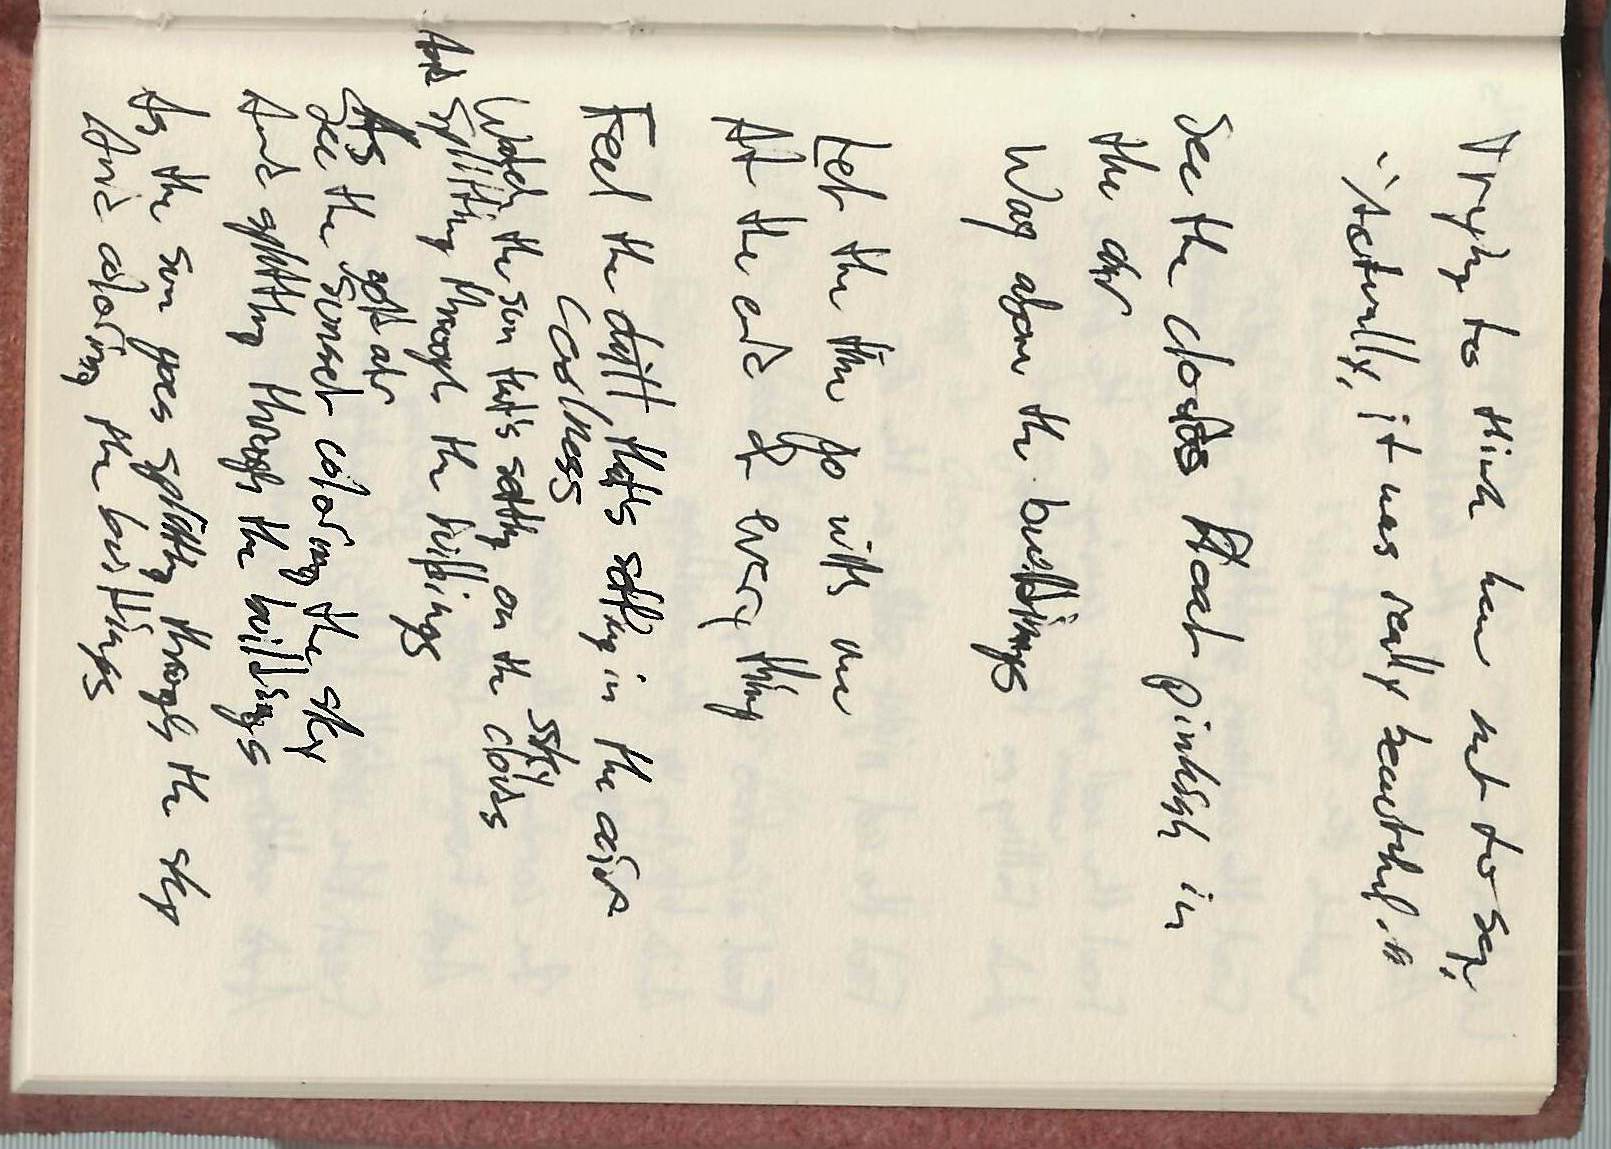 Trying to think how not to say,
"Actually, it was really beautiful."
See the clouds float pinkish in
the air
Way above the buildings
Let the time go with me
At the end of every thing
Feel the that's setting in the air
coolness
sky
Watch the sun that's setting on the clouds
And splitting through the buildings
As
See the sunset coloring the sky
And splitting through the buildings
As the sun goes splitting through the sky
And coloring the buildings